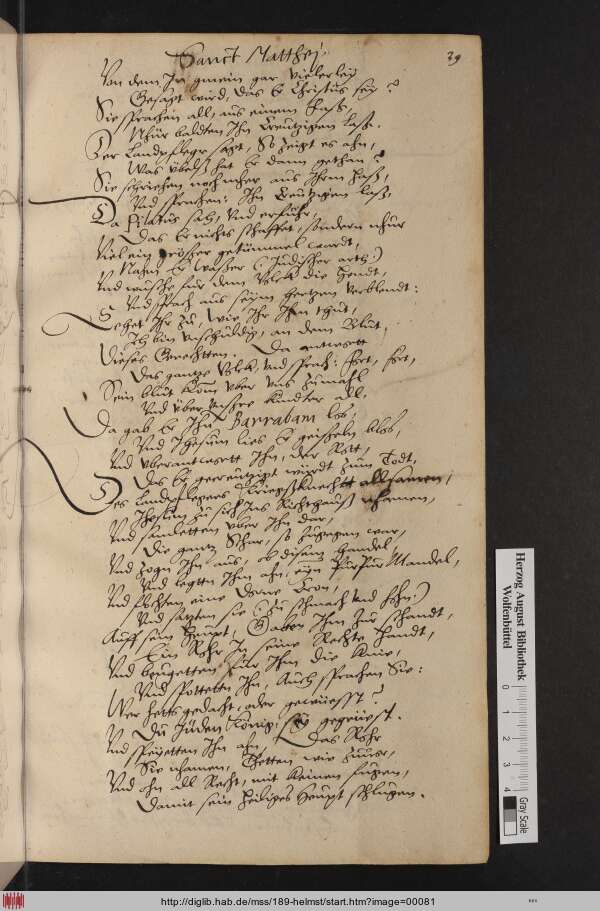 Sanct Matthej.
29
Von dem In gmein gar vielerley
Gesagt wird, das Er Christus sey?
Sie sprachen all, aus einem Hass,
Nhur baldten Ihn Creutzigen lass.
Der Landpfleger sagt, So zeigt es ahn,
Was übelss hat Er dann gethan?
Sie schriehen noch mher aus Ihrm Hass,
Vnd sprachen: Ihn Creutzigen lass,
Da Pilatus sah, Vnd erfuhr,
Das Er nichts schaffet, sondern nhur
Viel ein grösser getümmel wardt,
Nahm Er Wasser (Judischer arth)
Vnd wusche für dem Volck die Hendt,
Vnd sprach aus seym hertzen verblendt:
Sehet Ihr zu, wie Ihr Ihm thut,
Ich bin vnschuldig, an dem Blut,
Dieses Gerechtten. Da antwortt
Das gantze Volck, vnd sprach: fort, fort,
Sein blut kom vber vns zumahl
Vnd vber vnsere kindter all.
Da gab Er Ihn Barrabam los,
Vnd Ihesum lies Er geisseln blos,
Vnd vberantwortt Ihn, der Rott,
Das Er gecreutzigt würdt zum Todt,
Des Landpflegers Kriegssknecht allsamen,
Ihesum zu sich Ins Richthauss nhamen,
Vnd samletten vber Ihn dar,
Die gantz Schar, so zugegen war,
Vnd zogn Ihn aus, ob disem handel
Vnd legtten Ihm ahn, eyn Purpur Mandel,
Vnd flochten eine Dorne Cron,
Vnd satzten sie (Zu schmach vnd hohn)
Auff sein Haupt, Gaben Ihm zur schandt,
Ein Rohr In seine Rechte Handt,
Vnd beugetten für Ihm die Knie,
Vnd spottetten Ihn, Auch sprachen Sie:
Wer hetts gedacht, oder gewüesst?
Du Jüden König, sey gegrüesst.
Vnd speyetten Ihn ahn, Das Rohr
Sie nhamen, Thetten wie zuuor,
Vnd ohn all Recht, mit keinen fugen,
Damit sein heiliges Haupt schlugen.
Herzog August Bibliothek
Wolfenbüttel
0 1 2 3 4
Gray Scale
http://diglib.hab.de/mss/189-helmst/start.htm?image=00081